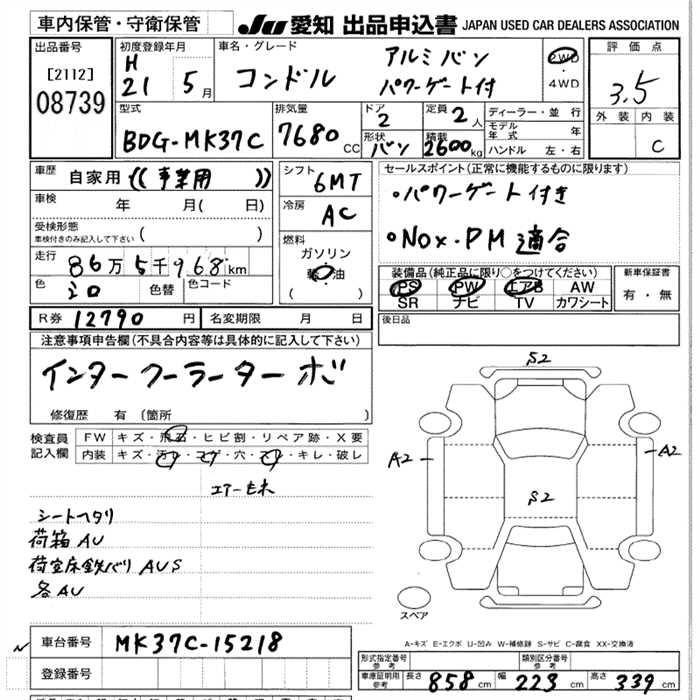 車内保管・守衛保管
JU 愛知 出品申込書 JAPAN USED CAR DEALERS ASSOCIATION
出品番号
[2112]
08739
初度登録年月
H
21 5月
車名・グレード
コンドル アルミバン
パワーゲート付
2WD
・
4WD
評価点
3.5
外装 内装
C
型式
BDG-MK37C
排気量
7680 CC
ドア
2
形状
バン
定員
2人
積載
2600kg
ディーラー・並行
モデル年式 年
ハンドル 左・右
車歴
自家用 (( 事業用 ))
車検 年 月( 日)
受検形態
車検付きのみ記入して下さい ( )
走行
86万5千968km
色
シロ 色替 色コード
シフト
6MT
冷房
AC
燃料
ガソリン
軽油
( )
セールスポイント(正常に機能するものに限ります)
・パワーゲート付き
・NOx・PM 適合
装備品(純正品に限り○をつけてください)
PS PW エアB AW
SR ナビ TV カワシート
新車保証書
有・無
R券 12790 円 名変期限 月 日
後日品
注意事項申告欄(不具合内容等は具体的に記入して下さい)
インタークーラーターボ
修復歴 有 (箇所 )
検査員記入欄
FW キズ・飛石・ヒビ割・リペア跡・X要
内装 キズ・汚レ・コゲ・穴・スレ・キレ・破レ
エアーモレ
シートヘタリ
荷箱AU
荷室床鉄バリAUS
各AU
S2
A2
A2
S2
スペア
A-キズ E-エクボ U-凹み W-補修跡 S-サビ C-腐食 XX-交換済
車台番号 MK37C-15218
登録番号
形式指定番号 参考
類別区分番号 参考
車庫証明用 参考 長さ 858cm 幅 223cm 高さ 339cm